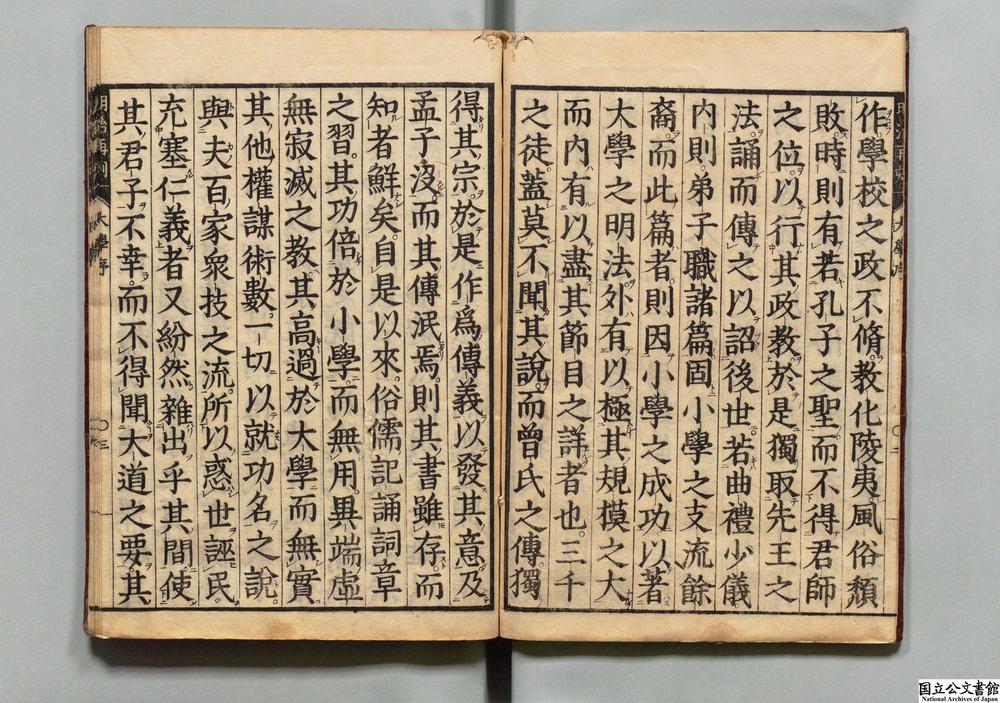 作學校之政不脩教化陵夷風俗頽
敗時則有若孔子之聖而不得君師
之位以行其政教於是獨取先王之
法誦而傳之以詔後世若曲禮少儀
内則弟子職諸篇固小學之支流餘
裔而此篇者則因小學之成功以著
大學之明法外有以極其規模之大
而内有以盡其節目之詳者也三千
之徒蓋莫不聞其說而曾氏之傳獨
得其宗於是作爲傳義以發其意及
孟子沒而其傳泯焉則其書雖存而
知者鮮矣自是以來俗儒記誦詞章
之習其功倍於小學而無用異端虛
無寂滅之教其高過於大學而無實
其他權謀術數一切以就功名之說
與夫百家衆技之流所以惑世誣民
充塞仁義者又紛然雜出乎其間使
其君子不幸而不得聞大道之要其
大學序
国立公文書館
National Archives of Japan